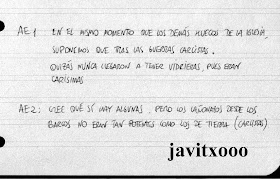 AE 1: EN EL MISMO MOMENTO QUE LOS DEMÁS HUECOS DE LA IGLESIA,
SUPONEMOS QUE TRAS LAS GUERRAS CARLISTAS.
QUIZÁS NUNCA LLEGARON A TENER VIDRIERAS, PUES ERAN
CARÍSIMAS.
AE2: CREE QUE SÍ HAY ALGUNAS, PERO LOS CAÑONAZOS DESDE LOS
BARCOS NO ERAN TAN POTENTES COMO LOS DE TIERRA (CARLISTAS)
javitxooo